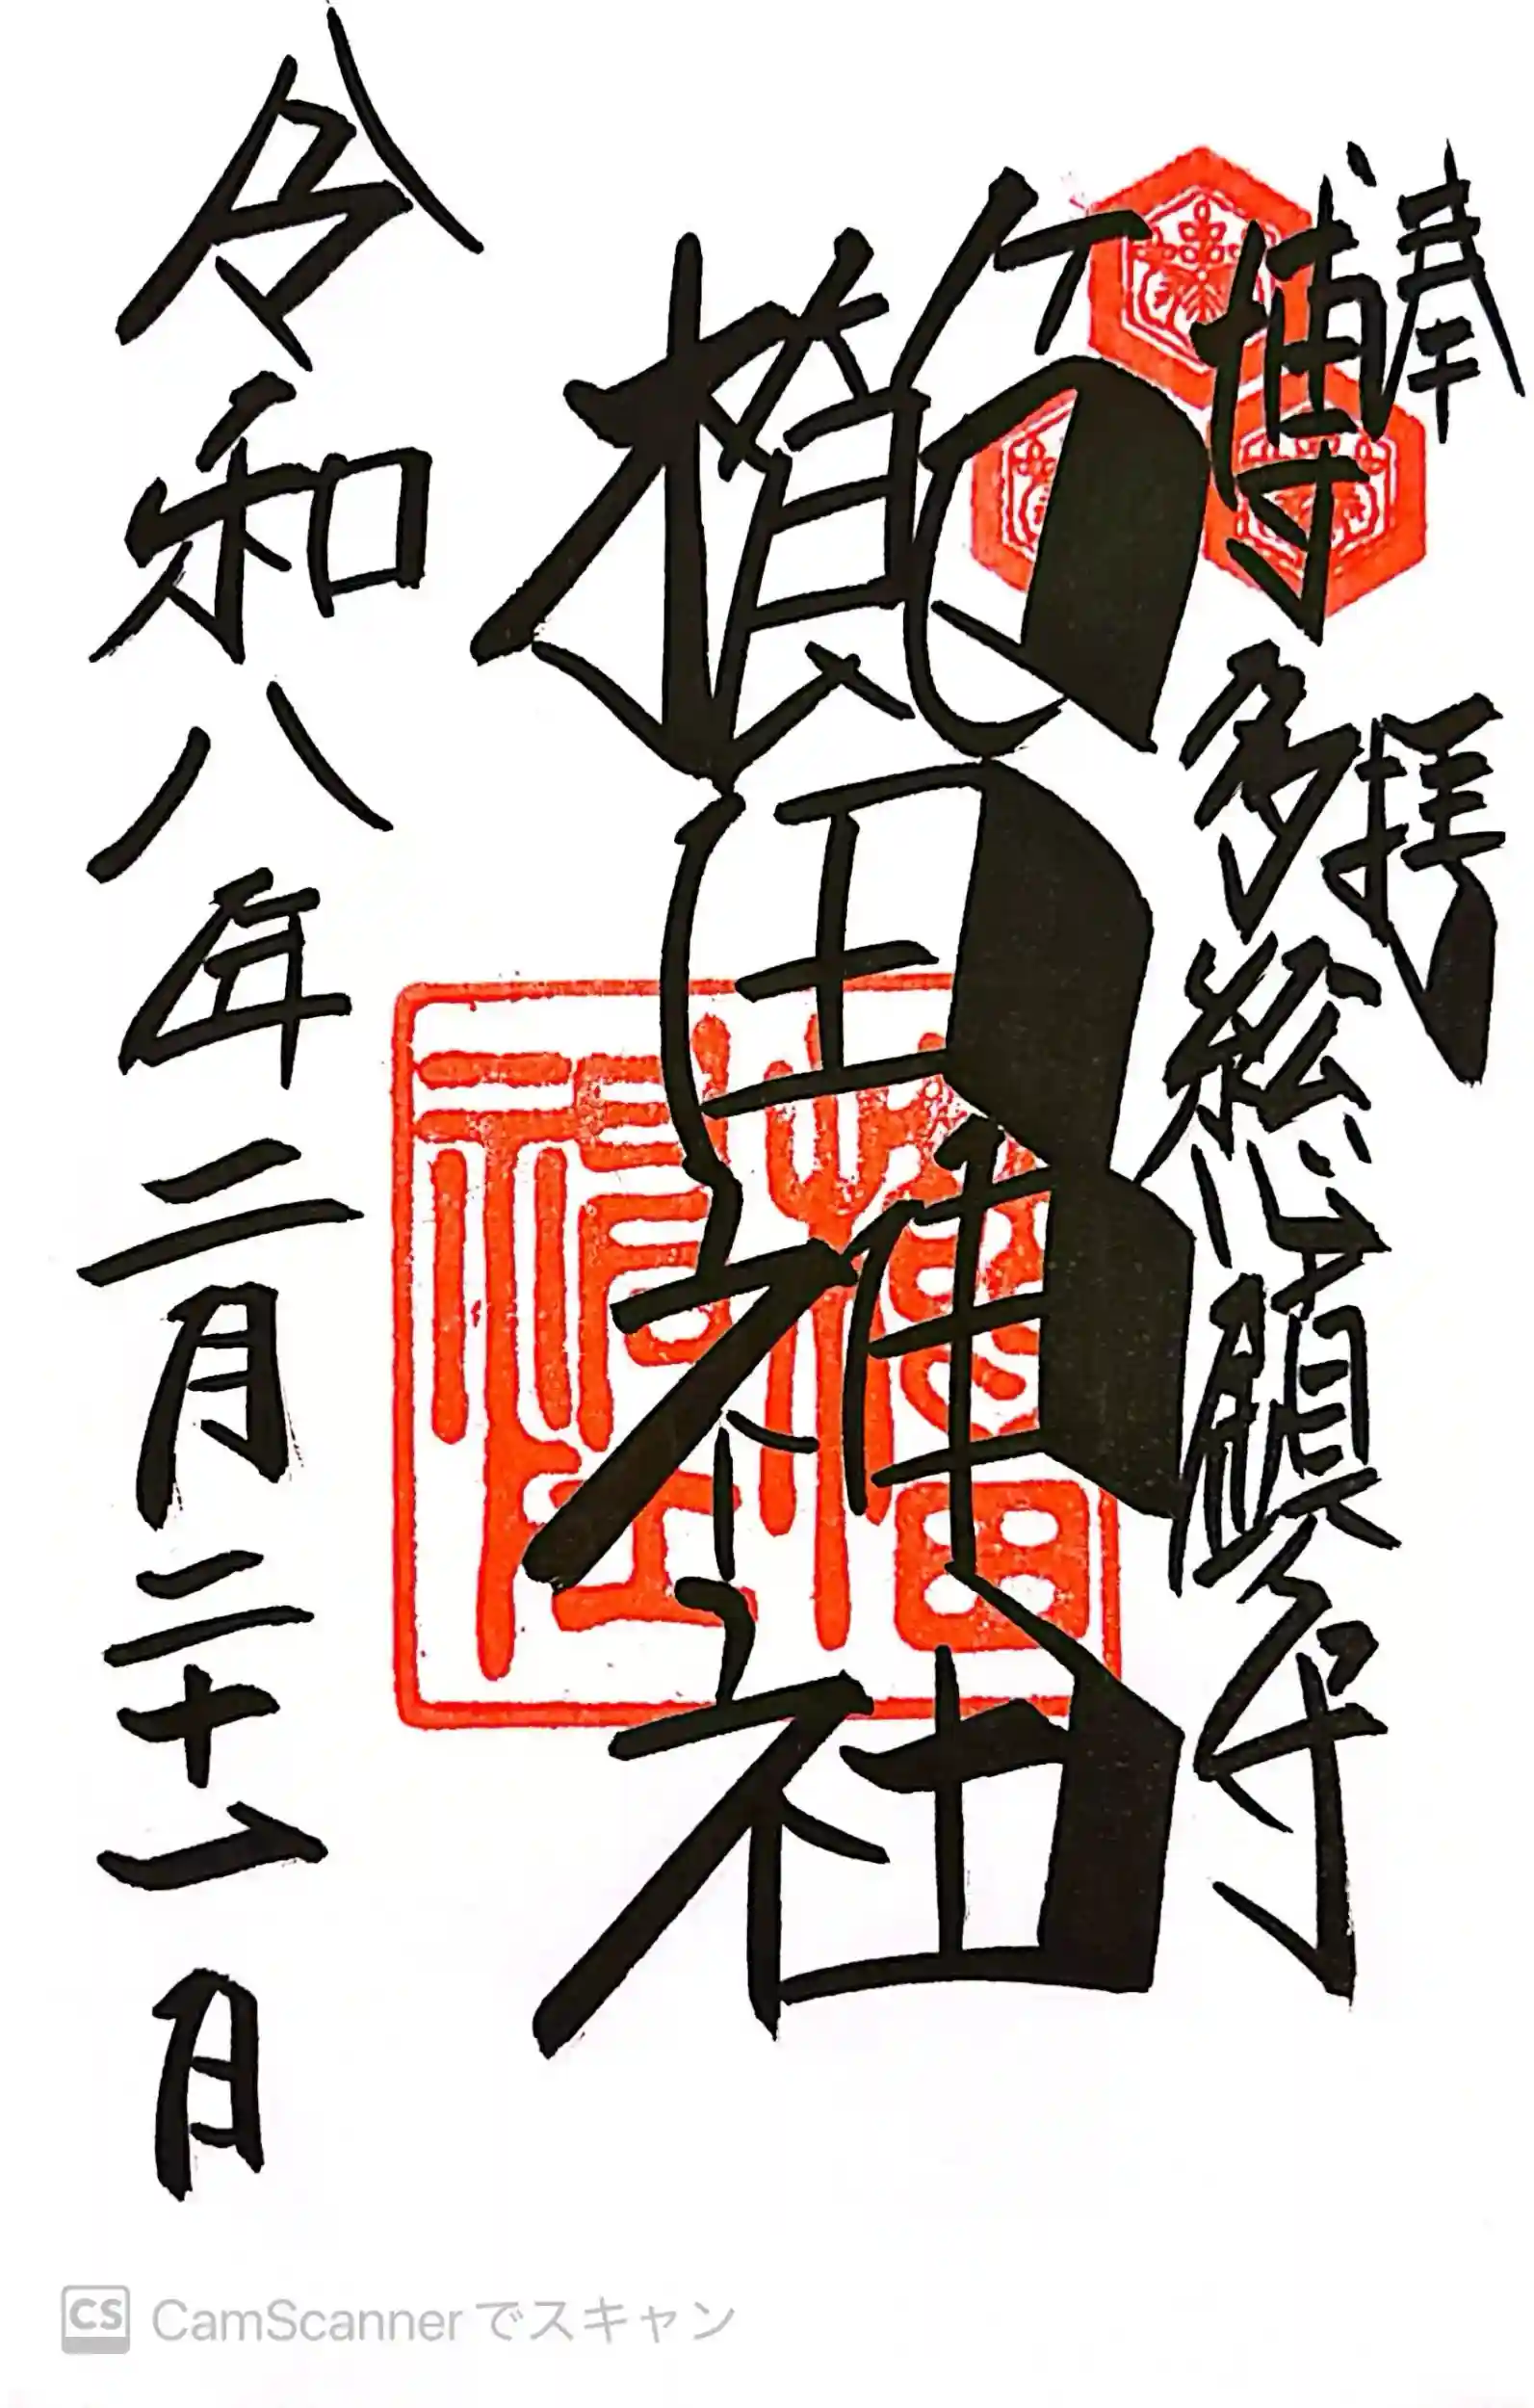 奉拝
博多総鎮守
櫛田神社
令和八年二月二十一日
CS CamScannerでスキャン